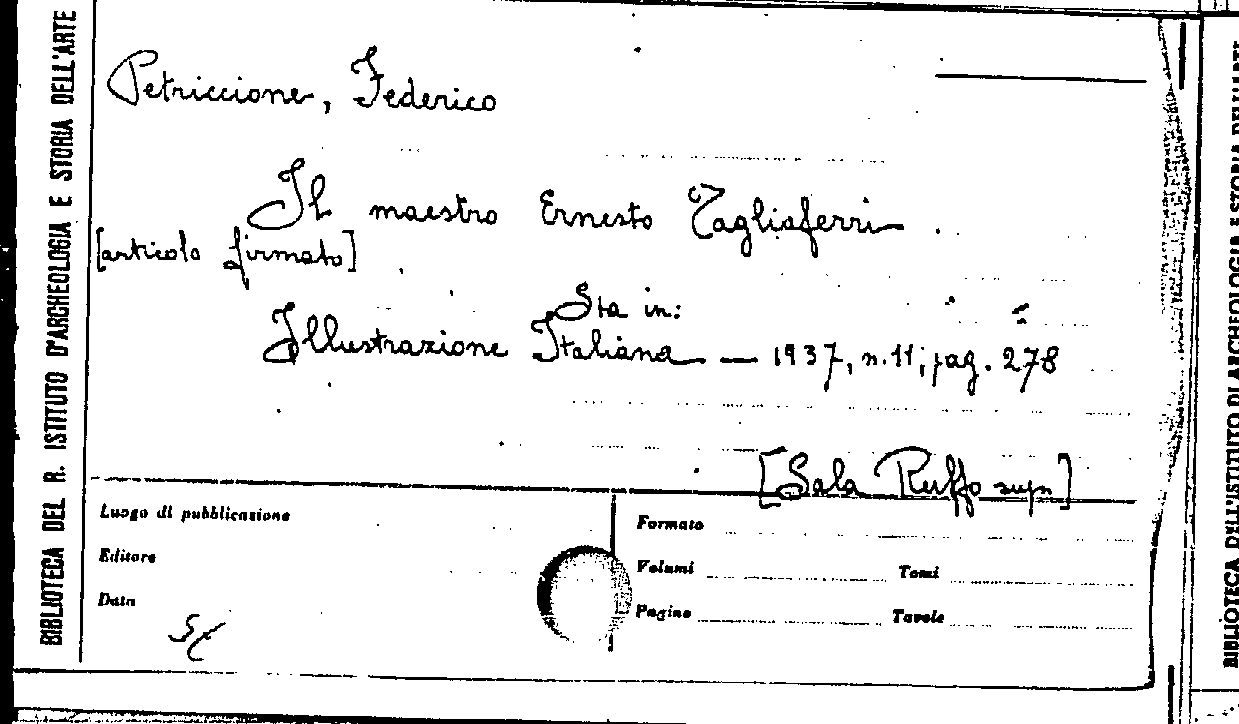 BIBLIOTECA DEL R. ISTITUTO D'ARCHEOLOGIA E STORIA DELL'ARTE
Petriccione, Federico
Il maestro Ernesto Tagliaferri.
[articolo firmato]
Sta in:
Illustrazione Italiana — 1937, n. 11; pag. 278
[Sala Ruffo supp]
Luogo di pubblicazione
Editore
Data
Formato
Volumi Tomi
Pagine Tavole
BIBLIOTECA DELL'ISTITUTO DI ARCHEOLOGIA E STORIA DELL'ARTE